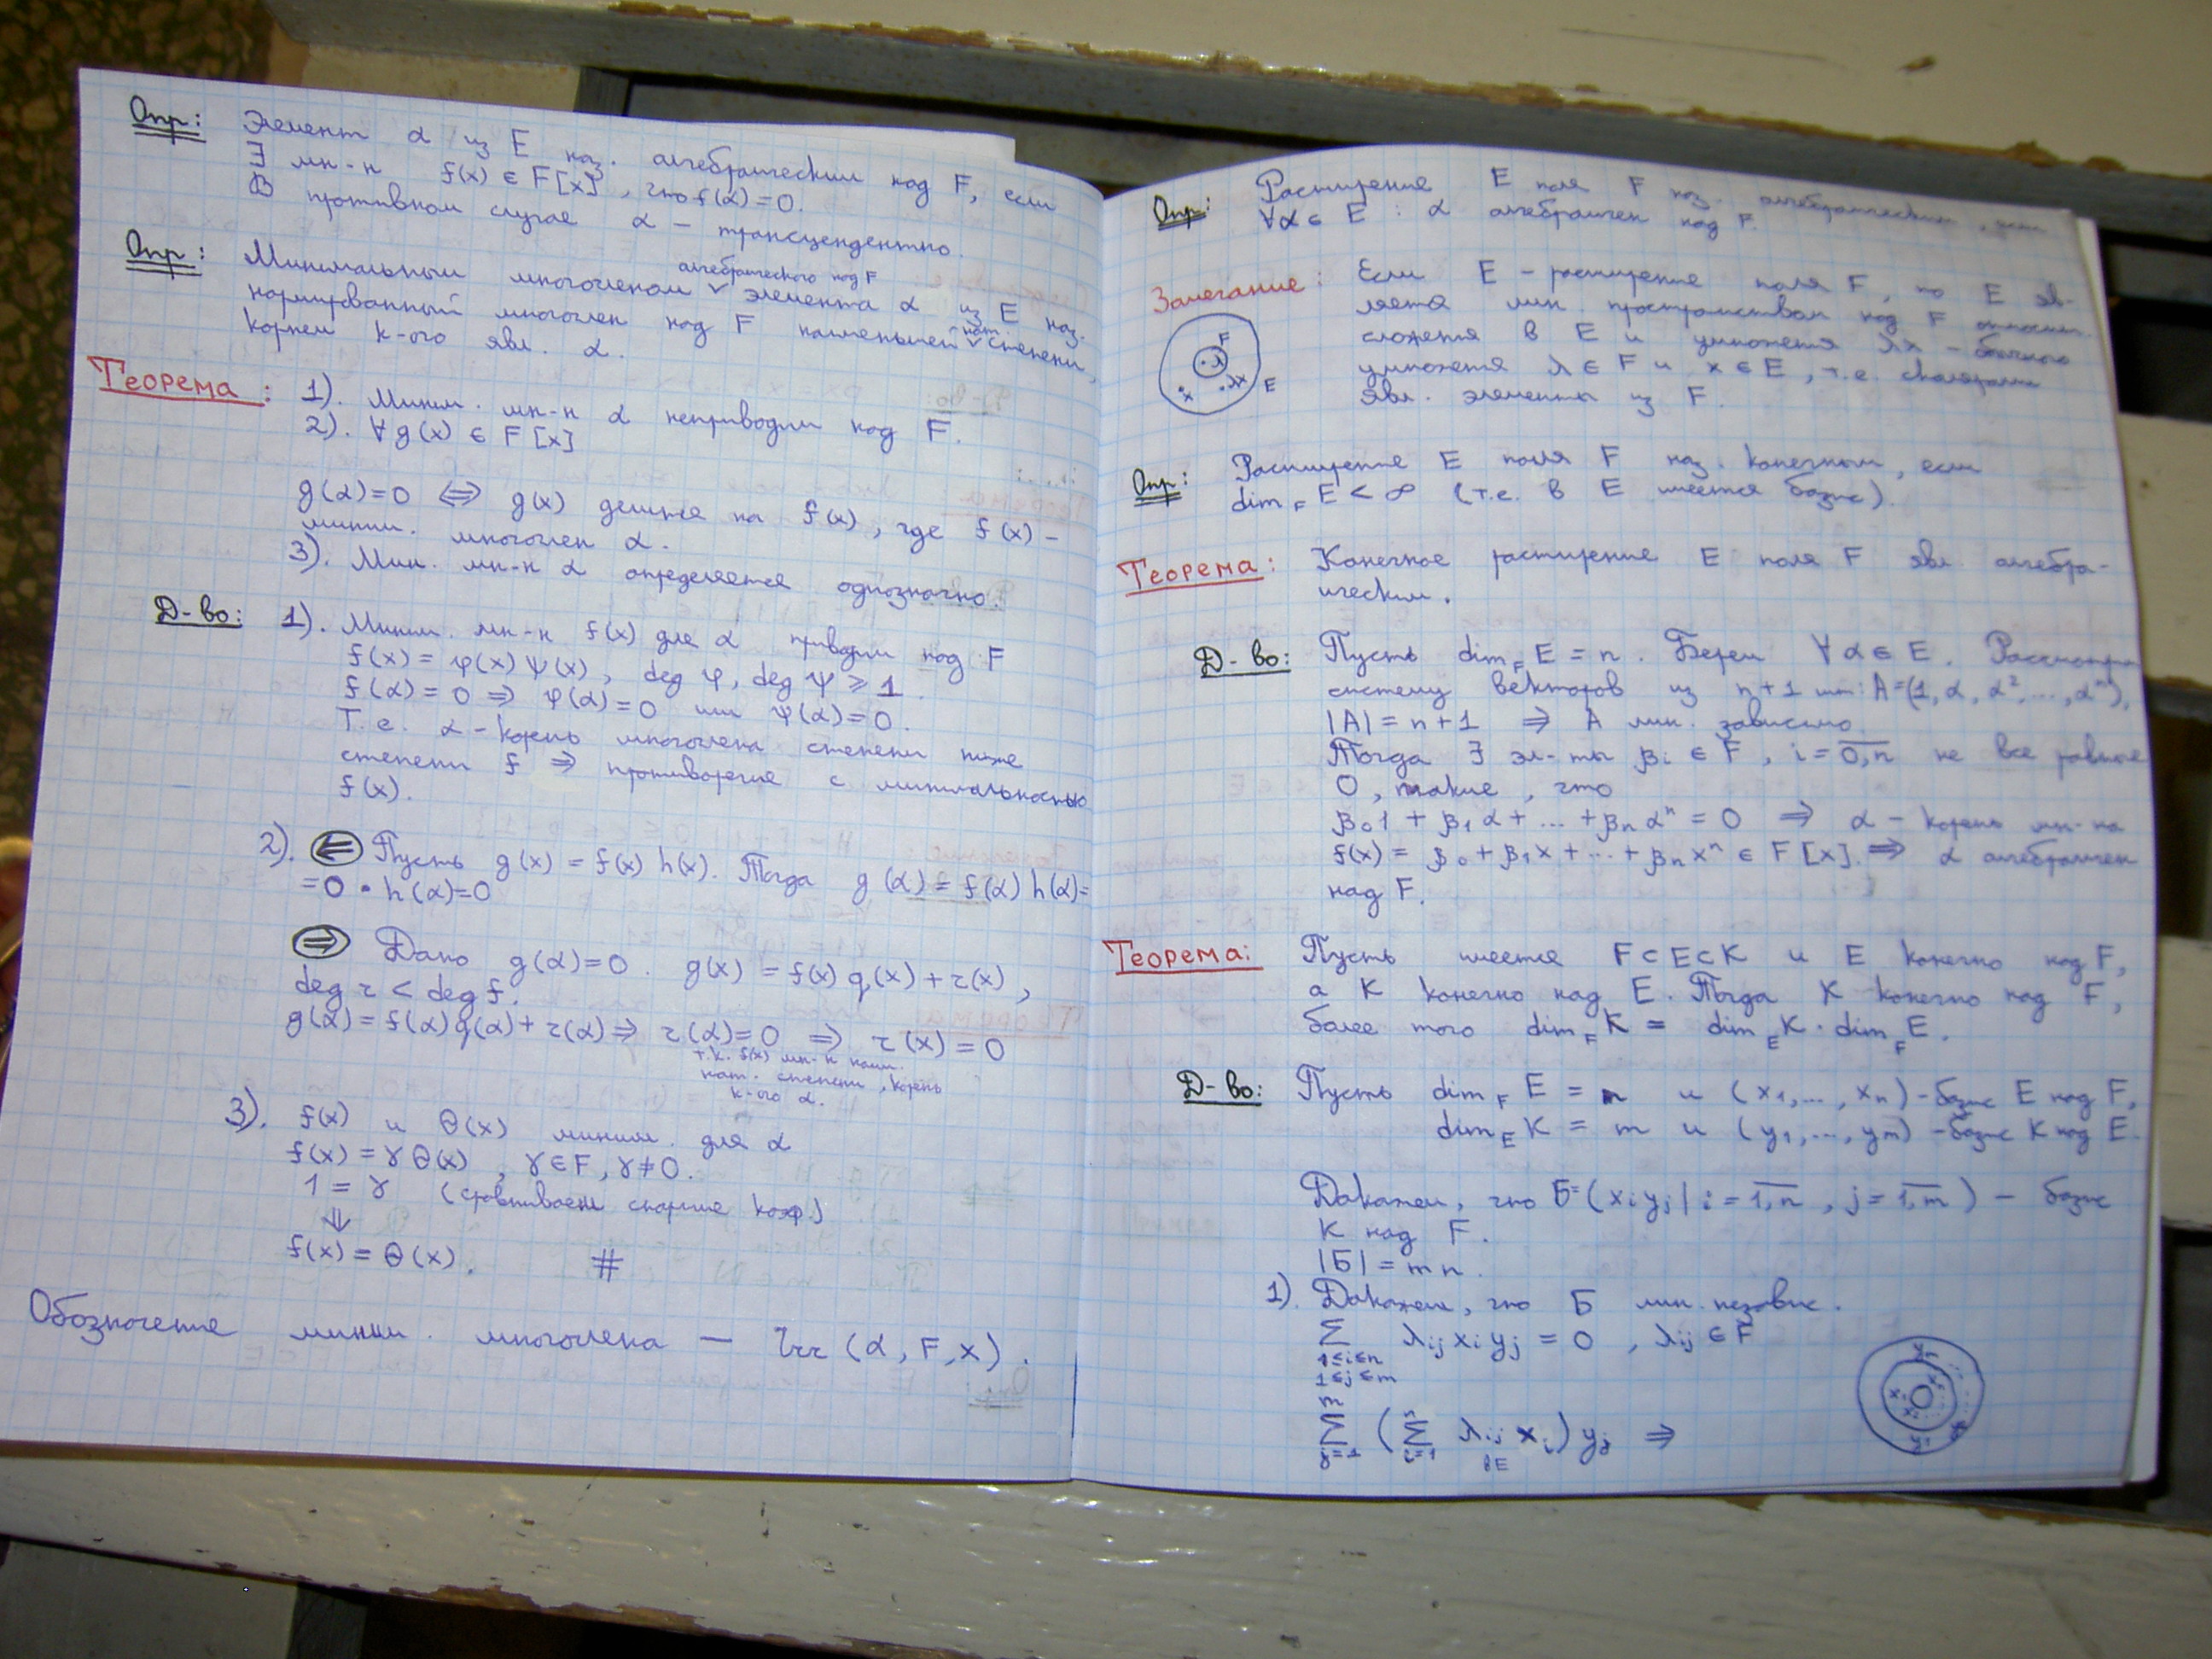 Опр: Элемент α из E наз. алгебраическим над F, если
∃ мн-н f(x) ∈ F[x], что f(α)=0.
В противном случае α – трансцендентно.
Опр: Минимальным многочленом ∨ элемента α из E наз.
алгебраического над F
нормированный многочлен над F наименьшей ∨ степени,
нат.
корнем к-ого явл. α.
Теорема: 1). Миним. мн-н α неприводим над F.
2). ∀ g(x) ∈ F[x]
g(α)=0 ⇔ g(x) делится на f(x), где f(x) –
миним. многочлен α.
3). Мин. мн-н α определяется однозначно.
Д-во: 1). Миним. мн-н f(x) для α приводим над F
f(x) = φ(x) ψ(x), deg φ, deg ψ ⩾ 1
f(α) = 0 ⇒ φ(α)=0 или ψ(α)=0.
Т.е. α – корень многочлена степени ниже
степени f ⇒ противоречие с минимальностью
f(x).
2). ⇐ Пусть g(x) = f(x) h(x). Тогда g(α) = f(α) h(α)=
=0 · h(α)=0
⇒ Дано g(α)=0. g(x) = f(x) q(x) + r(x),
deg r < deg f.
g(α) = f(α) q(α) + r(α) ⇒ r(α)=0 ⇒ r(x) = 0
т.к. f(x) мн-н наим.
нат. степени, корень
к-ого α.
3). f(x) и Θ(x) миним. для α
f(x) = γ Θ(x), γ ∈ F, γ ≠ 0.
1 = γ (сравниваем старшие коэф.)
⇓
f(x) = Θ(x). #
Обозначение миним. многочлена — Irr (α, F, x).
Опр: Расширение E поля F наз. алгебраическим, если
∀α ∈ E : α алгебраичен над F.
Замечание: Если E – расширение поля F, то E яв-
ляется лин. пространством над F относит.
сложения в E и умножения λx – обычного
умножения λ ∈ F и x ∈ E, т.е. скалярами
явл. элементы из F.
F
λ
x λx E
Опр: Расширение E поля F наз. конечным, если
dim_F E < ∞ (т.е. в E имеется базис).
Теорема: Конечное расширение E поля F явл. алгебра-
ическим.
Д-во: Пусть dim_F E = n. Берем ∀ α ∈ E. Рассмотрим
систему векторов из n+1 шт: A=(1, α, α², ..., αⁿ),
|A| = n+1 ⇒ A лин. зависимо.
Тогда ∃ эл-ты βᵢ ∈ F, i = 0,n не все равные
0, такие, что
β₀1 + β₁α + ... + βₙαⁿ = 0 ⇒ α – корень мн-на
f(x) = β₀ + β₁x + ... + βₙxⁿ ∈ F[x] ⇒ α алгебраичен
над F.
Теорема: Пусть имеется F⊂E⊂K и E конечно над F,
а K конечно над E. Тогда K конечно над F,
более того dim_F K = dim_E K · dim_F E.
Д-во: Пусть dim_F E = n и (x₁, ..., xₙ) – базис E над F,
dim_E K = m и (y₁, ..., yₘ) – базис K над E.
Докажем, что Б = (xᵢyⱼ | i = 1,n, j = 1,m) – базис
K над F.
|Б| = mn.
1). Докажем, что Б лин. независ.
∑ λᵢⱼ xᵢ yⱼ = 0, λᵢⱼ ∈ F
1≤i≤n
1≤j≤m
m n
∑ ( ∑ λᵢⱼ xᵢ ) yⱼ ⇒
j=1 i=1 ∈E